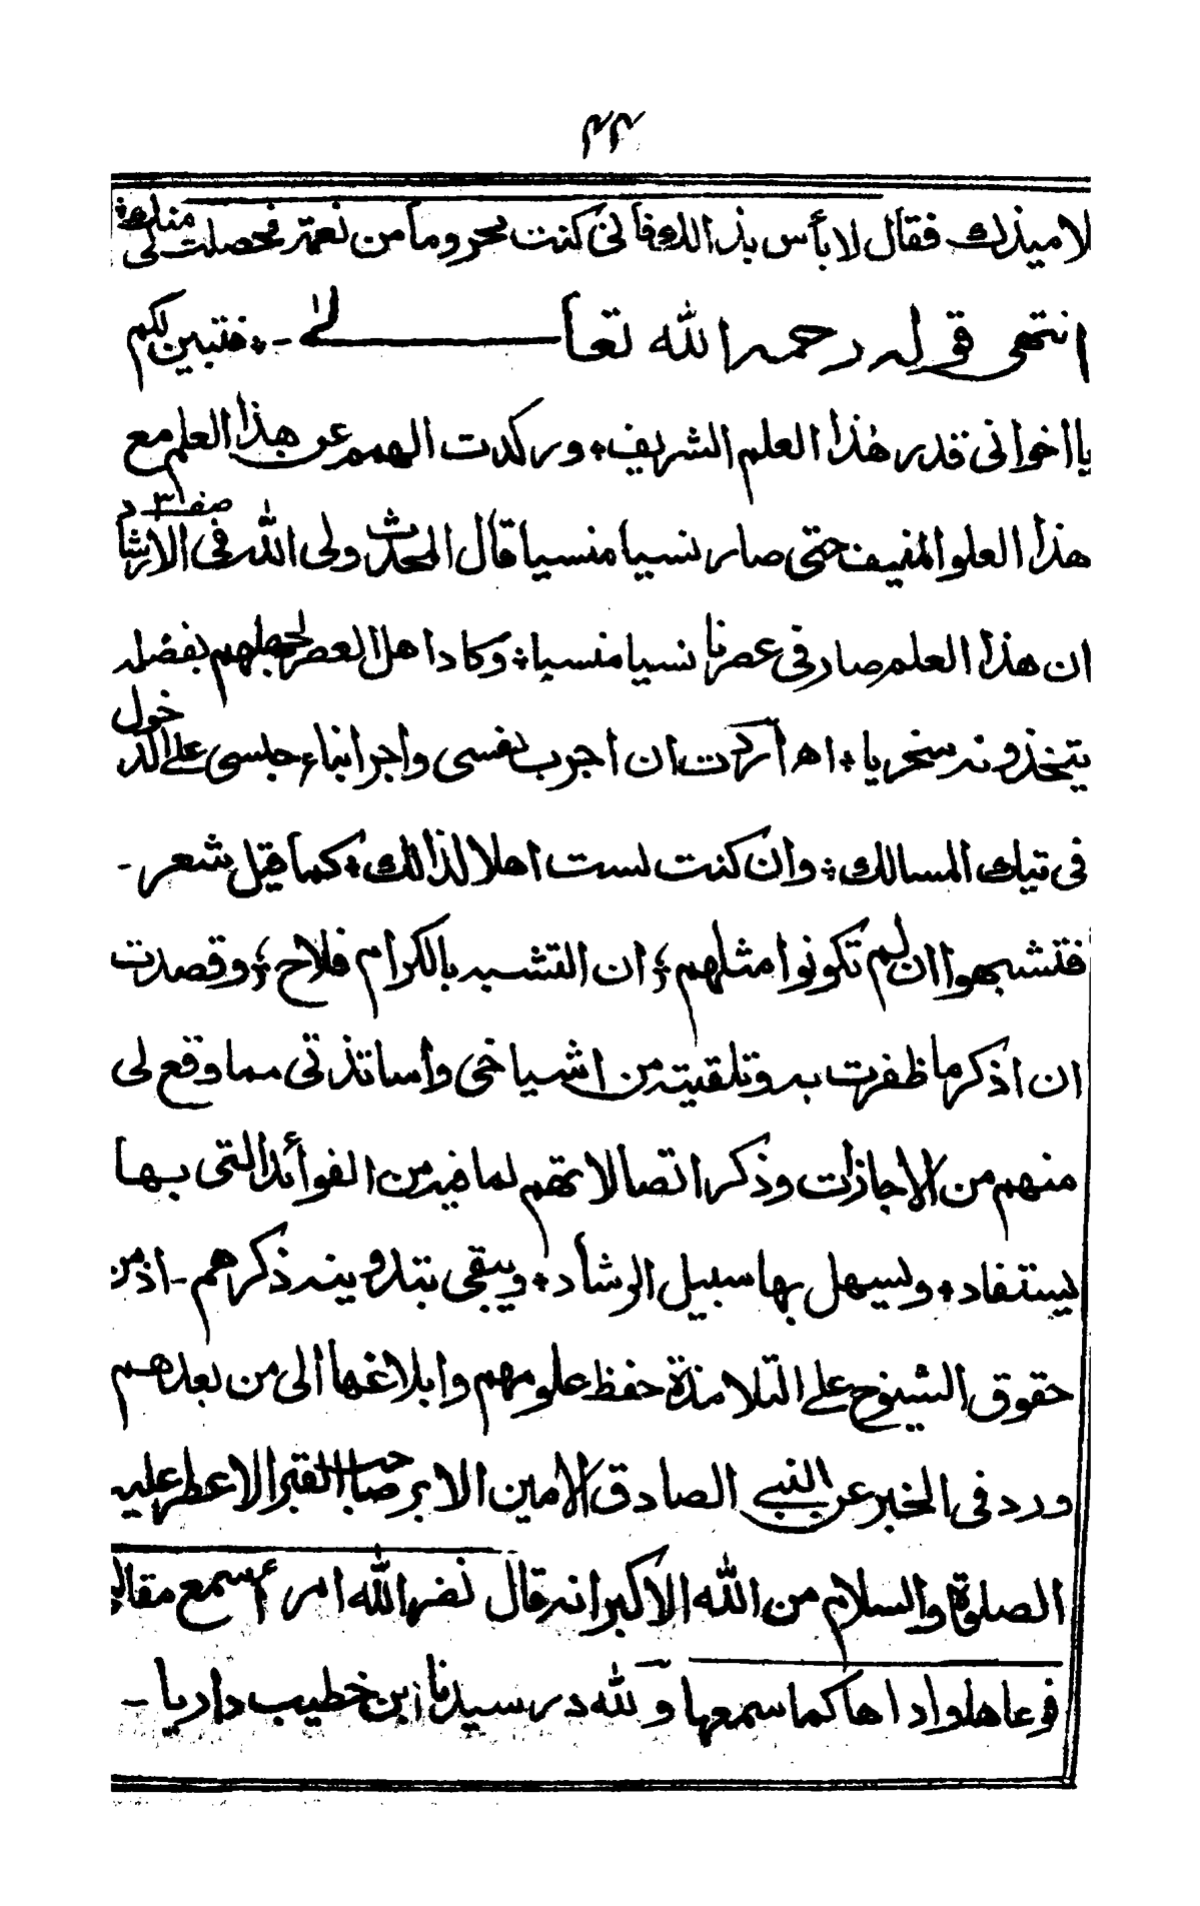 ٤٤
لاميذك فقال لا بأس بذالك فانى كنت محروما من نعمة فحصلت لى منك
انتهى قوله رحمه الله تعالى - ٭ فتبين لكم
يا اخوانى قدر هذا العلم الشريف ٭ وركدت الهمم عن هذا العلم مع
هذا العلو المنيف حتى صار نسيا منسيا قال المحدث ولى الله فى الارشاد صفـ٣ـ
ان هذا العلم صار فى عصرنا نسيا منسيا ٭ وكاد اهل العصر لجهلهم بفضله
يتخذونه سخريا ٭ اه اردت ان اجرب نفسى واجر ابناء جلسى على الدخول
فى تيك المسالك ٭ وان كنت لست اهلا لذالك ٭ كما قيل شعر -
فتشبهوا ان لم تكونوا مثلهم ؛ ان التشبه بالكرام فلاح ؛ وقصدت
ان اذكر ما ظفرت به وتلقيته من اشياخى واساتذتى مما وقع لى
منهم من الاجازات وذكر اتصالاتهم لما فيه من الفوائد التى بها
يستفاد ٭ ويسهل بها سبيل الرشاد ٭ ويبقى بتدوينه ذكرهم - اذ من
حقوق الشيوخ على التلامذة حفظ علومهم وابلاغها الى من بعدهم
ورد فى الخبر عن النبى الصادق الامين الابر صاحب القبر الاعطر عليه
الصلوة والسلام من الله الاكبر انه قال نضر الله امرءً سمع مقالتى
فوعاها واداها كما سمعها ولله در سيدنا ابن خطيب داريا -